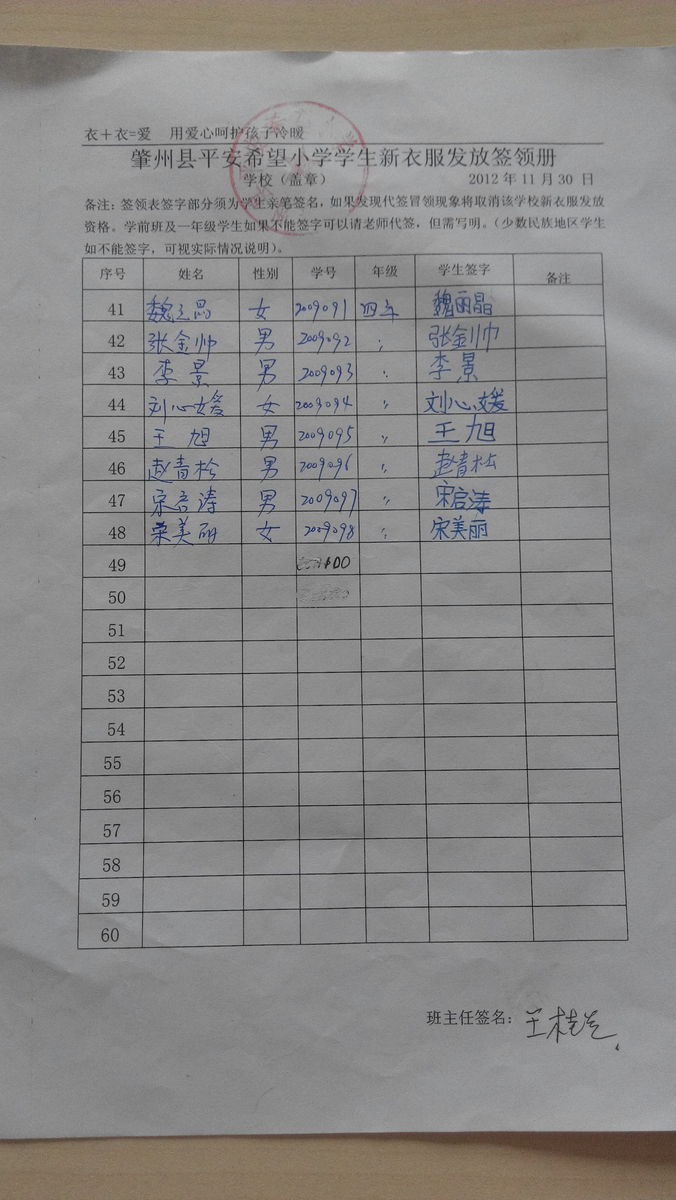 衣+衣=爱 用爱心呵护孩子冷暖
肇州县平安希望小学学生新衣服发放签领册
学校（盖章） 2012 年 11 月 30 日
备注：签领表签字部分须为学生亲笔签名，如果发现代签冒领现象将取消该学校新衣服发放
资格。学前班及一年级学生如果不能签字可以请老师代签，但需写明。（少数民族地区学生
如不能签字，可视实际情况说明）。
序号 姓名 性别 学号 年级 学生签字 备注
41 魏 女 2009091 四年 魏丽晶
42 张金帅 男 2009092 〃 张金帅
43 李景 男 2009093 〃 李景
44 刘心媛 女 2009094 〃 刘心媛
45 王旭 男 2009095 〃 王旭
46 赵青松 男 2009096 〃 赵青松
47 宋启涛 男 2009097 〃 宋启涛
48 宋美丽 女 2009098 〃 宋美丽
49
50
51
52
53
54
55
56
57
58
59
60
班主任签名：王桂